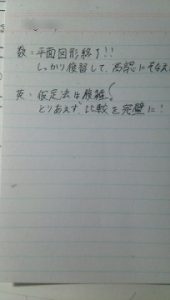 数：平面図形終了!!
しっかり復習して、高認にそなえ
英：仮定法は複雑!
とりあえず、比較を完璧に!